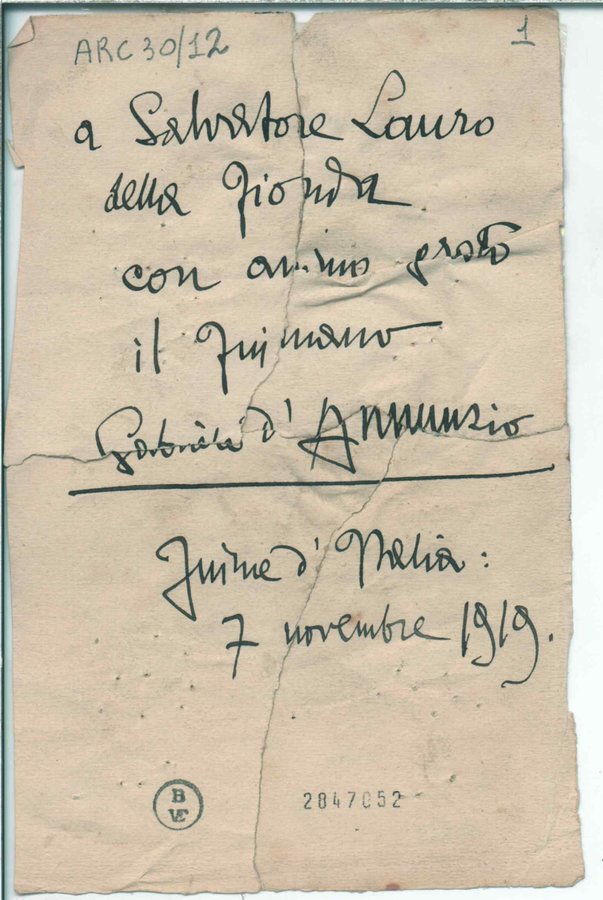 ARC 30/12
1
a Salvatore Lauro
della Fionda
con animo grato
il Fiumano
Gabriele d'Annunzio
Fiume d'Italia:
7 novembre 1919.
B
VE
2847052